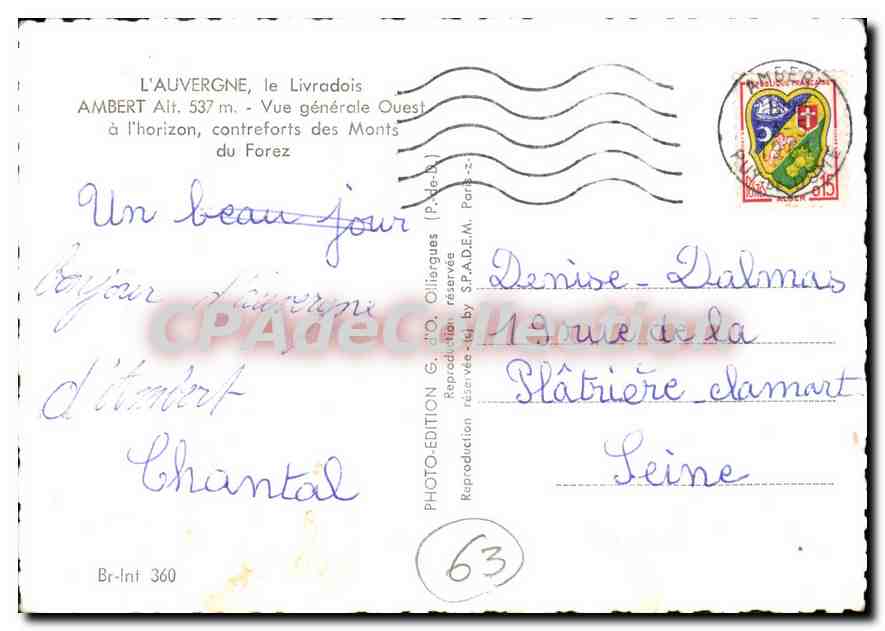 L'AUVERGNE, le Livradois
AMBERT Alt. 537 m. - Vue générale Ouest
à l'horizon, contreforts des Monts
du Forez
Un beau jour
bonjour d'auvergne
d'Ambert
Chantal
Br-Int 360
PHOTO-EDITION G. d'O. Olliergues (P.-de-D.)
Reproduction réservée
Reproduction réservée - (c) by S.P.A.D.E.M. Paris
AMBERT
PUY DE DOME
REPUBLIQUE FRANÇAISE
POSTES
0,15
ALGER
Denise - Dalmas
19 rue de la
Plâtrière - clamart
Seine
63
CPAdeCollection